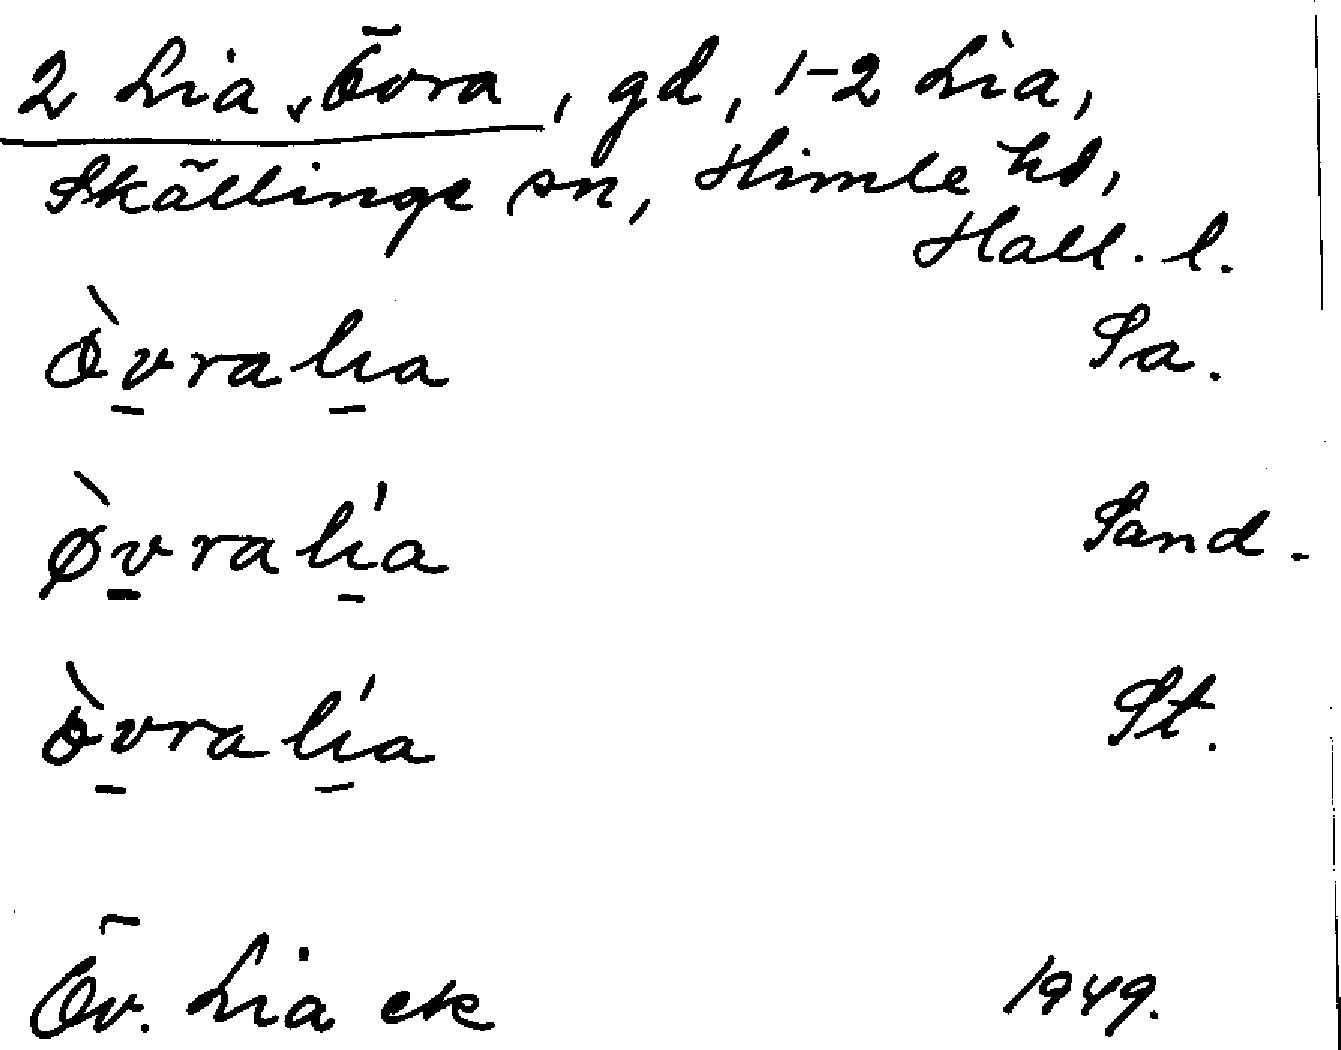 2 Lia, Övra, gd, 1-2 Lia,
Skällinge sn, Himle hd,
Hall. l.
Ø̀v̱ralı̱a Sa.
Ø̀v̱ralı̱́a Sand.
ò̱vralı̱́a St.
Öv. Lia ek 1949.